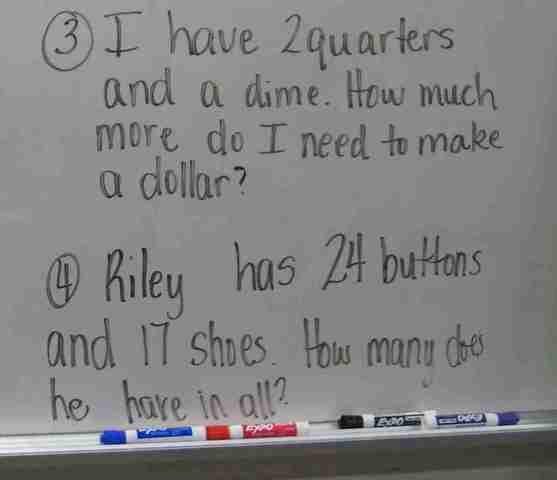 ③ I have 2 quarters
and a dime. How much
more do I need to make
a dollar?
④ Riley has 24 buttons
and 17 shoes. How many does
he have in all?
EXPO EXPO EXPO EXPO